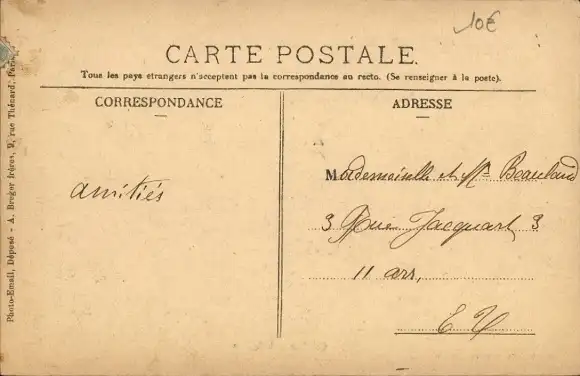 10€
CARTE POSTALE.
Tous les pays etrangers n'acceptent pas la correspondance au recto. (Se renseigner à la poste).
CORRESPONDANCE
ADRESSE
amitiés
Mademoiselle et
3 Rue Jacquart, 3
11 arr,
E V
Photo-Email, Déposé - A. Breger frères, 9, rue Thénard, Paris